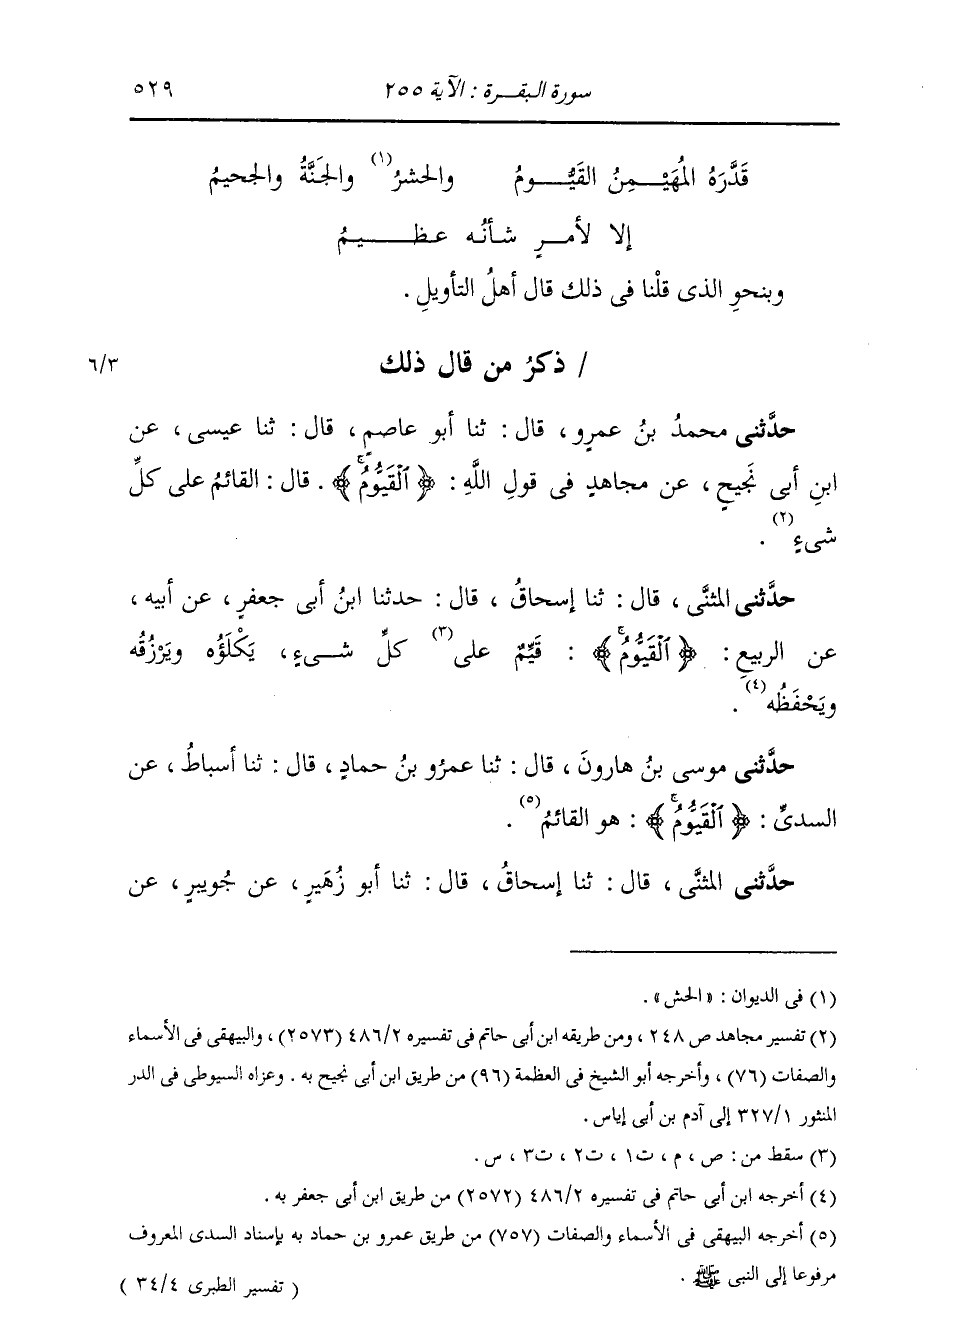 سورة البقـرة : الآية ٢٥٥ ٥٢٩
قَدَّرَهُ المُهَيْـمِنُ القَيُّـومُ والحشرُ(١) والجَنَّةُ والجحيمُ
إلا لأمـرٍ شـأنُه عظـيمُ
وبنحوِ الذى قلْنا فى ذلك قال أهلُ التأويلِ .
/ ذكرُ من قال ذلك ٦/٣
حدَّثنى محمدُ بنُ عمرٍو ، قال : ثنا أبو عاصمٍ ، قال : ثنا عيسى ، عن
ابنِ أبى نَجيحٍ ، عن مجاهدٍ فى قولِ اللَّهِ : ﴿ ٱلْقَيُّومُ ﴾ . قال : القائمُ على كلِّ
شىءٍ(٢) .
حدَّثنى المثنَّى ، قال : ثنا إسحاقُ ، قال : حدثنا ابنُ أبى جعفرٍ ، عن أبيه ،
عن الربيعِ : ﴿ ٱلْقَيُّومُ ﴾ : قَيِّمٌ على(٣) كلِّ شـىءٍ ، يَكْلَؤُه ويَرْزُقُه
ويَحْفَظُه(٤) .
حدَّثنى موسى بنُ هارونَ ، قال : ثنا عمرُو بنُ حمادٍ ، قال : ثنا أسباطُ ، عن
السدىِّ : ﴿ ٱلْقَيُّومُ ﴾ : هو القائمُ(٥) .
حدَّثنى المثنَّى ، قال : ثنا إسحاقُ ، قال : ثنا أبو زُهَيرٍ ، عن جُويبرٍ ، عن
(١) فى الديوان : « الحش » .
(٢) تفسير مجاهد ص ٢٤٨ ، ومن طريقه ابن أبى حاتم فى تفسيره ٤٨٦/٢ (٢٥٧٣) ، والبيهقى فى الأسماء
والصفات (٧٦) ، وأخرجه أبو الشيخ فى العظمة (٩٦) من طريق ابن أبى نجيح به . وعزاه السيوطى فى الدر
المنثور ٣٢٧/١ إلى آدم بن أبى إياس .
(٣) سقط من : ص ، م ، ت١ ، ت٢ ، ت٣ ، س .
(٤) أخرجه ابن أبى حاتم فى تفسيره ٤٨٦/٢ (٢٥٧٢) من طريق ابن أبى جعفر به .
(٥) أخرجه البيهقى فى الأسماء والصفات (٧٥٧) من طريق عمرو بن حماد به بإسناد السدى المعروف
مرفوعا إلى النبى ﷺ .
( تفسير الطبرى ٣٤/٤ )